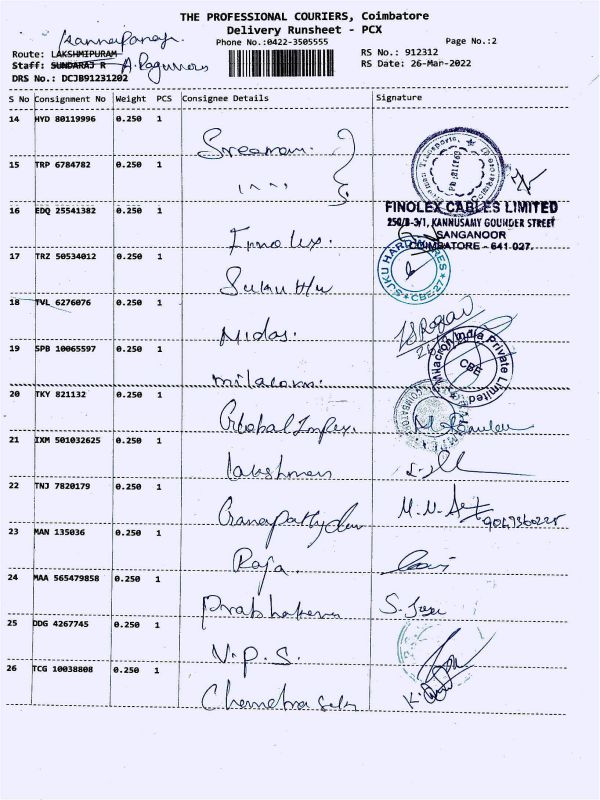 THE PROFESSIONAL COURIERS, Coimbatore
Delivery Runsheet - PCX
Phone No.:0422-3505555 Page No.:2
Route: LAKSHMIPURAM RS No.: 912312
Staff: SUNDARAJ R RS Date: 26-Mar-2022
DRS No.: DCJB91231202
S No Consignment No Weight PCS Consignee Details Signature
14 HYD 80119996 0.250 1
Sreeram.
15 TRP 6784782 0.250 1
16 EDQ 25541382 0.250 1
FINOLEX CABLES LIMITED
250/B-3/1, KANNUSAMY GOUNDER STREET
SANGANOOR
COIMBATORE - 641 027.
Finolex.
17 TRZ 50534012 0.250 1
SUKU HARDWARES
CBE-27
18 TVL 6276076 0.250 1
Midas.
19 SPB 10065597 0.250 1
Milacron India Private Limited
CBE
milacorn.
20 TKY 821132 0.250 1
Global Impex.
21 IXM 501032625 0.250 1
Lakshman
22 TNJ 7820179 0.250 1
23 MAN 135036 0.250 1
Raja
24 MAA 565479858 0.250 1
Prabhakaran
25 DDG 4267745 0.250 1
V.P.S.
26 TCG 10038808 0.250 1